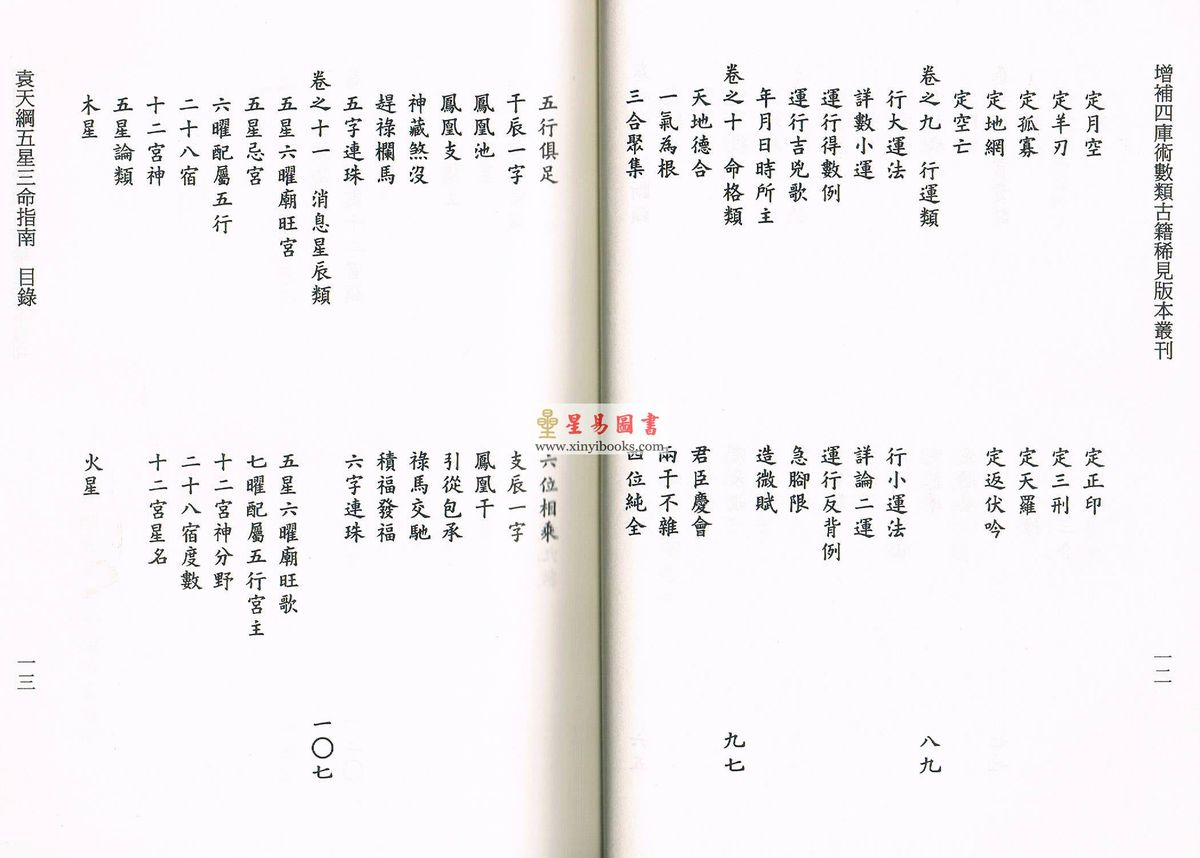 增補四庫術數類古籍稀見版本叢刊
一二
定月空 定正印
定羊刃 定三刑
定孤寡 定天羅
定地網 定返伏吟
定空亡
卷之九 行運類 八九
行大運法 行小運法
詳數小運 詳論二運
運行得數例 運行反背例
運行吉兇歌 急腳限
年月日時所主 造微賦
卷之十 命格類 九七
天地德合 君臣慶會
一氣為根 兩干不雜
三合聚集 四位純全
星易圖書
www.xinyibooks.com
五行俱足 六位相乘
干辰一字 支辰一字
鳳凰池 鳳凰干
鳳凰支 引從包承
神藏煞沒 祿馬交馳
趕祿欄馬 積福發福
五字連珠 六字連珠
卷之十一 消息星辰類 一〇七
五星六曜廟旺宮 五星六曜廟旺歌
五星忌宮 七曜配屬五行宮主
六曜配屬五行 十二宮神分野
二十八宿 二十八宿度數
十二宮神 十二宮星名
五星論類
木星 火星
袁天綱五星三命指南 目錄
一三